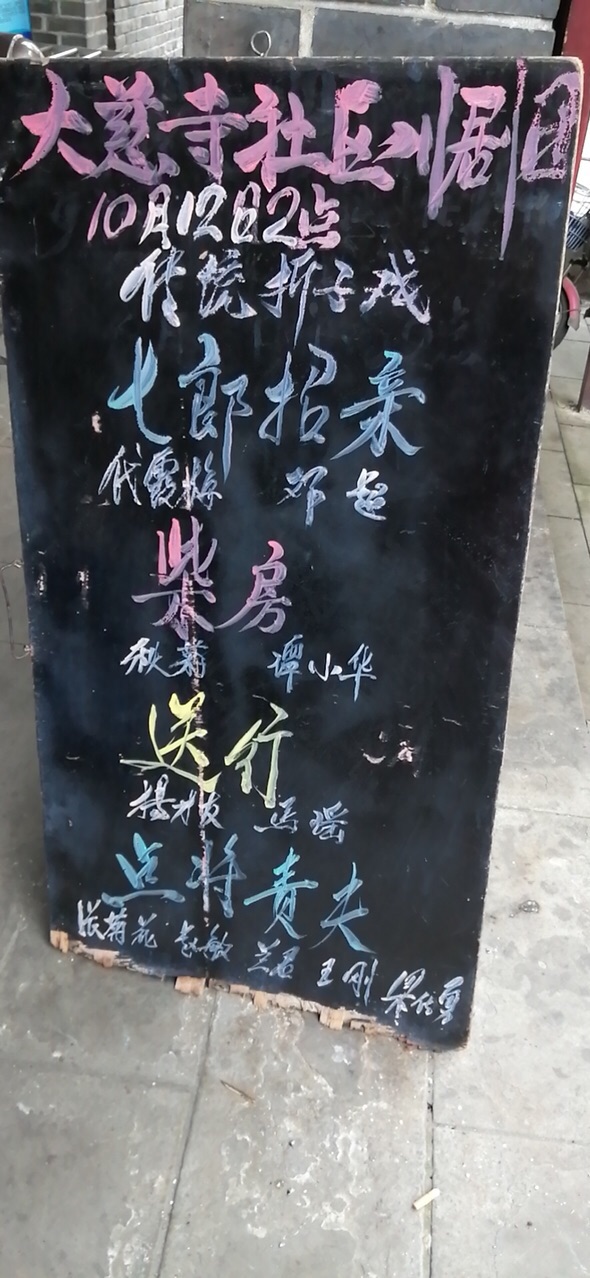 大慈寺社区川剧团
10月12日2点
传统折子戏
七郎招亲
代霞 邓超
柴房
秋菊 谭小华
送行
杨枝 马瑶
点将责夫
张菊花 长敏 兰君 王刚 梁传勇